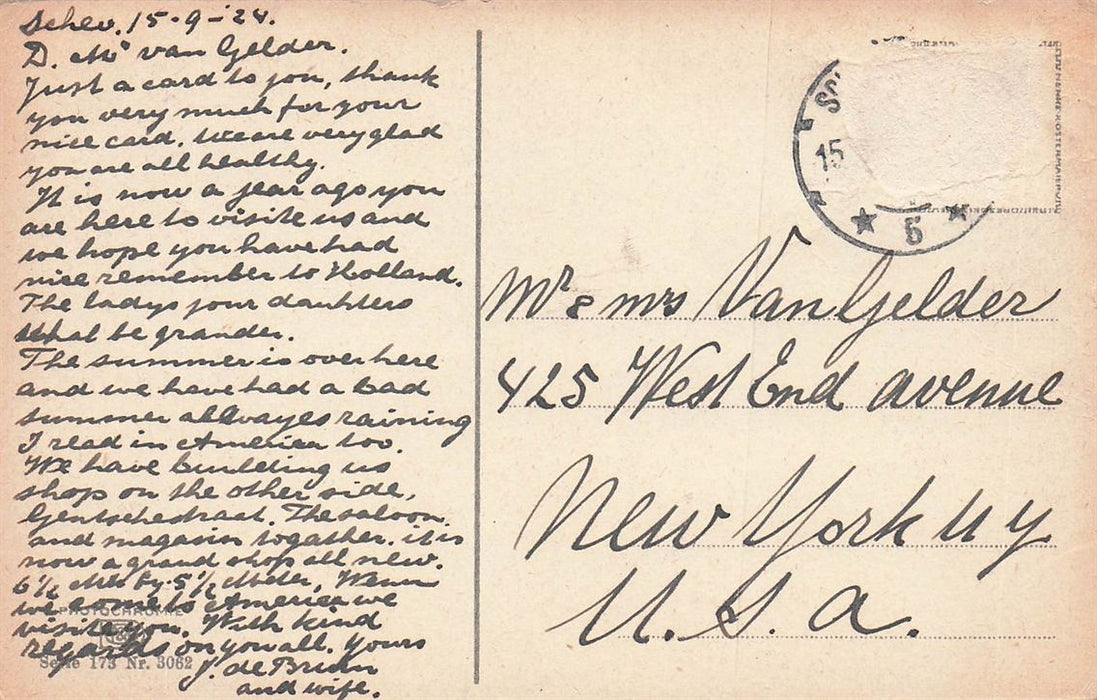 Schev. 15-9-'24.
D. Mr van Gelder.
Just a card to you, thank
you very much for your
nice card. We are very glad
you are all healthy.
It is now a jear ago you
are here to visite us and
we hope you have had
nice remember to Holland.
The ladys your daughters
shal be grander.
The summer is over here
and we have had a bad
summer allwayes raining
I read in America too.
We have buillding us
shop on the other side,
Gentschestraat. The saloon
and magasin togather. it is
now a grand shop all new.
6½ Mtr by 5½ Meter, Wenn
we come to America we
visite you. With kind
regards on you all. Yours
J. de Bruin
and wife.
PHOTOCHROMIE
Serie 173 Nr. 3062
15
5
Mr & mrs Van Gelder
425 West End avenue
New York N Y
U. S. a.